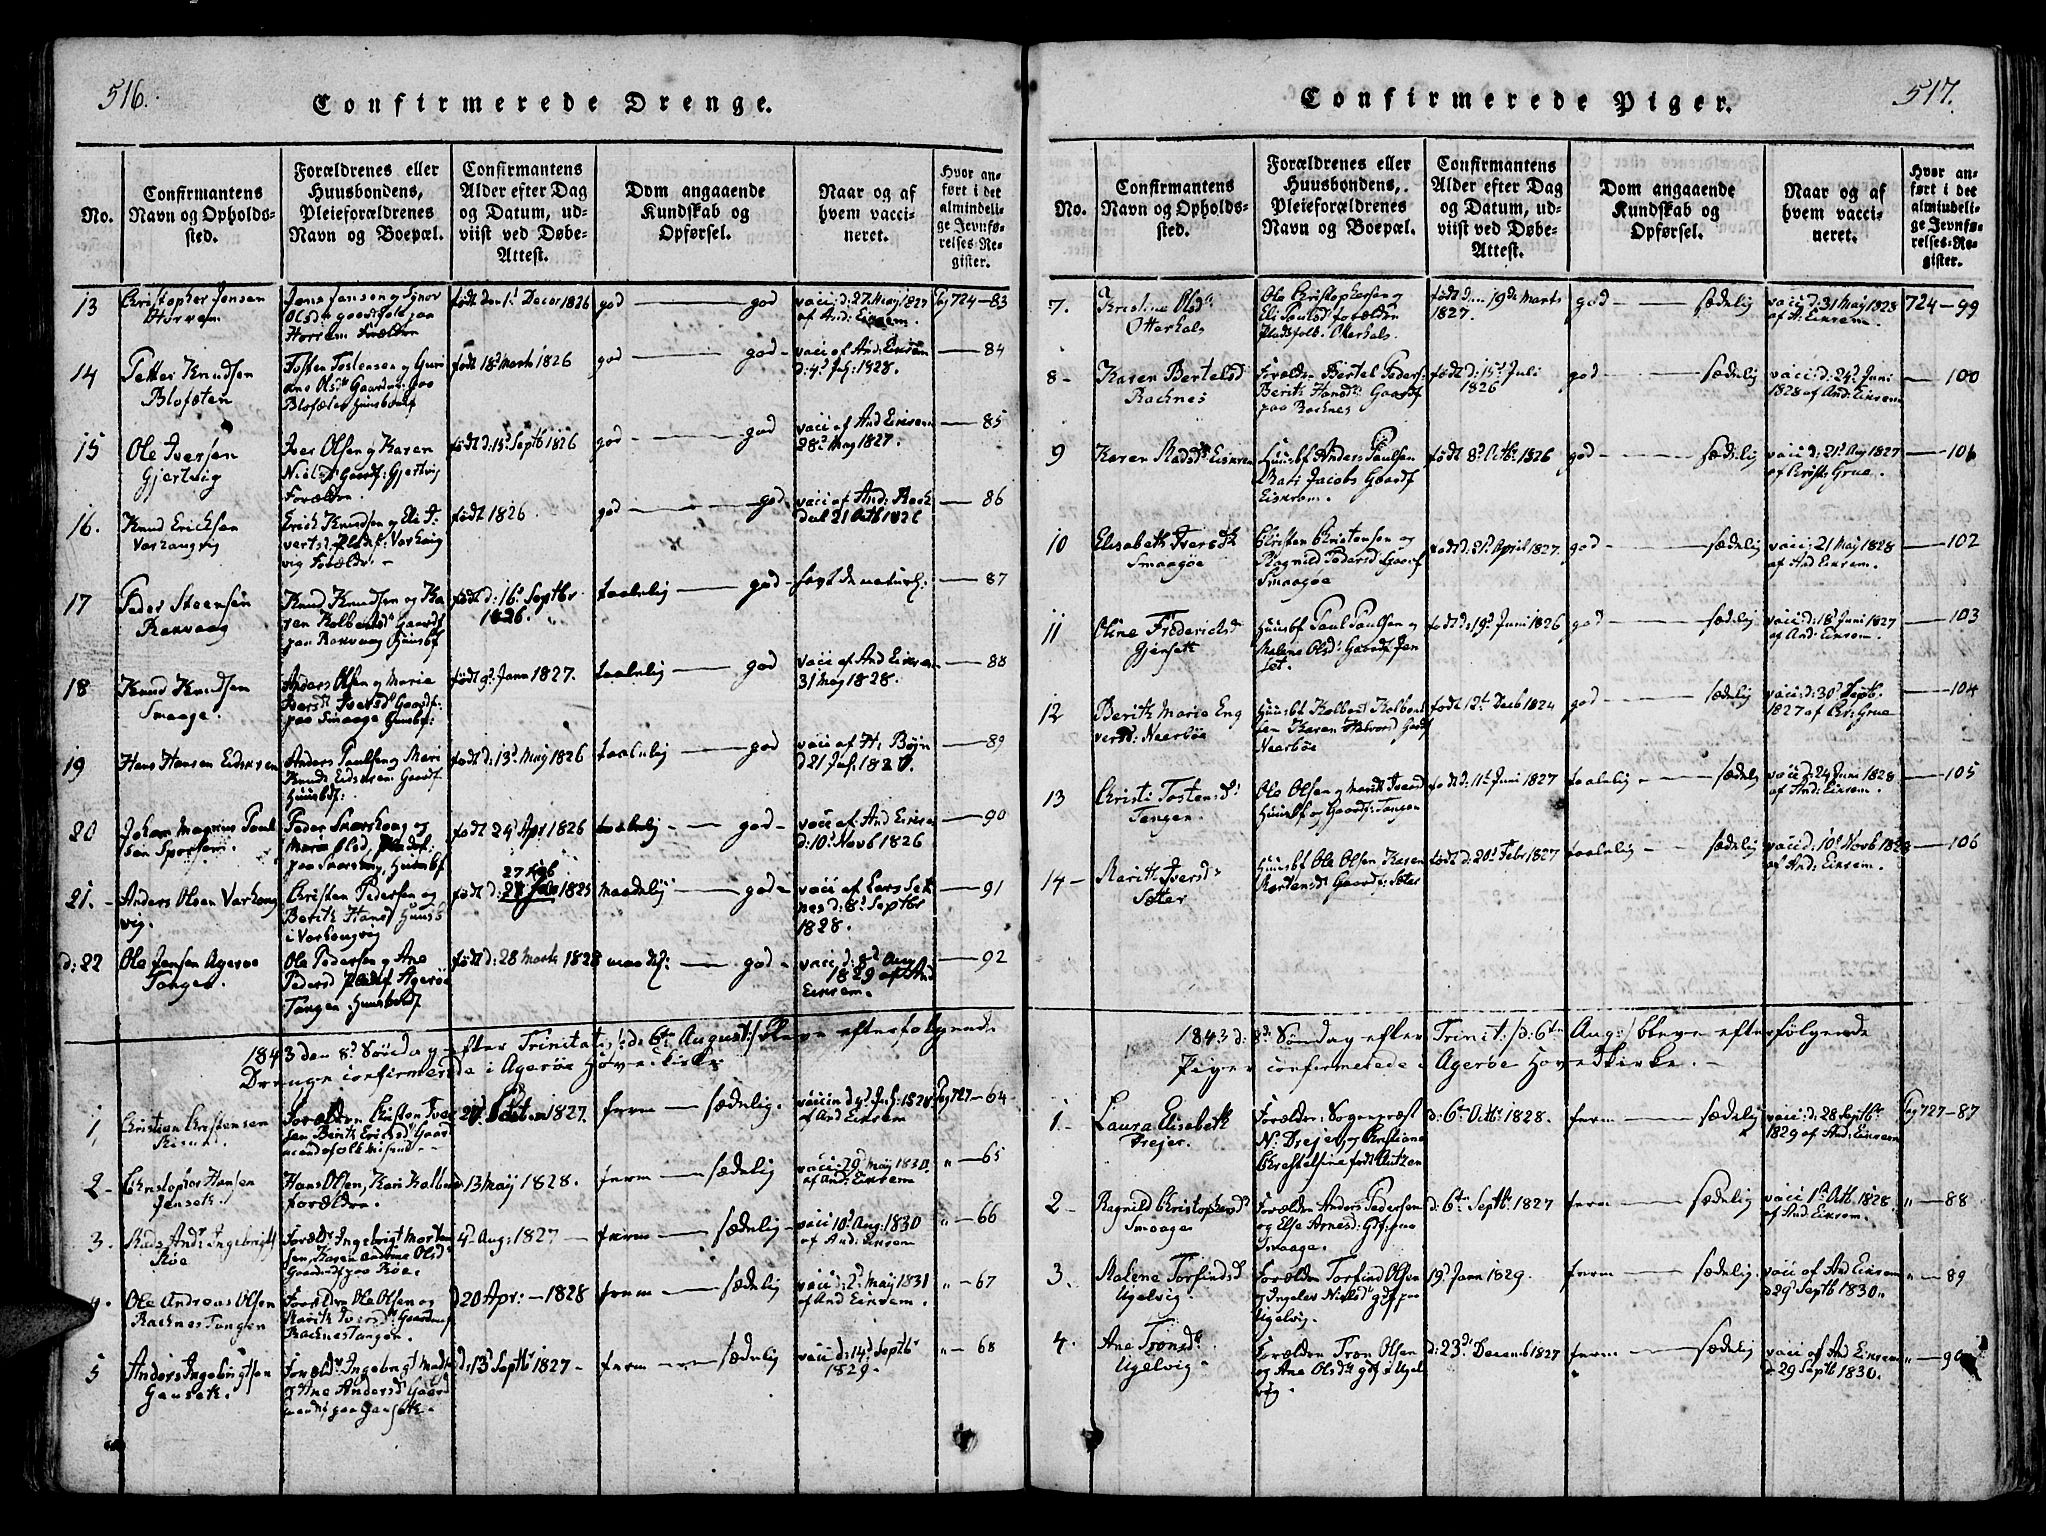 516.
Confirmerede Drenge.
No.
Confirmantens
Navn og Opholds-
sted.
Forældrenes eller
Huusbondens,
Pleieforældrenes
Navn og Boepæl.
Confirmantens
Alder efter Dag
og Datum, ud-
viist ved Døbe-
Attest.
Dom angaaende
Kundskab og
Opførsel.
Naar og af
hvem vacci-
neret.
Hvor an-
ført i det
almindeli-
ge Jevnfø-
relses-Re-
gister.
13
Christopher Jensen
Horrem
Olsd gaardfolk paa
Horrem Forældre
født den 1ᵗ Decbr 1826
god — god
vacc: d: 27 May 1827
af And: Eikrem.
Pag 724 — 83
14
Petter Knudsen
Blofsten
Tosten Tostensen og Guri
født 18ᵈ Marts 1826
god — god
vacc af And: Eikrem
d: 4ᵈ Jul: 1828.
— 84
15
Ole Iversen
Gjertvig
Iver Olsen og Karen
Nielsd Gaardf: Gjertvig
Forældre.
født d: 15ᵈ Septb 1826
god — god
vacc af And Eikrem
28ᵈ May 1827.
— 85
16.
Knud Ericksen
Varhougvig
Erich Knudsen og Eli I-
født 1826
god — god
— 86
17
Peder Steensen
Rakvaag
Knud Knudsen og Ka
ren Kolbensd Gaardf
paa Rakvaag Huusbf
født d: 16ᵈ Septbr
1826.
taalelig — god
— 87
18
Knud Knudsen
Smaage.
Anders Olsen og Marie
Iversd Gaardf:
paa Smaage Huusbf:
født 9ᵈ Jann 1827.
taalelig — god
vacc af And Eikrem
31 May 1828.
— 88
19
Hans Hansen Eidskrem
Anders Paulsen og Mari
Knuds Eidskrem Gaardf.
Huusbf:
født d: 13ᵈ May 1826
taalelig — god
vacc af H: Bøyn
— 89
20
Johan Magnus Paul
sen
født 24ᵈ Apr 1826
taalelig — god
vacc af And Eikrem
d: 10ᵈ Novb 1826
— 90
21.
Anders Olsen Varhoug
vig.
Christen Pedersen og
Berith Hansd Huusb
i Varhougvig
27 Feb
født d: 1825
maadelig — god
vacc af Lars Set
nes d: 8ᵈ Septbr
1828.
— 91
d: 22
Ole Jensen Agerøe
Tangen.
Ole Pedersen og Ane
Pedersd Pladsf Agerøe
Tangen Huusbondf
født d: 28 Marts 1828
maadel: — god
vacc: d. 8ᵈ Aug
1829 af And
Eikrem.
— 92
1843 den 8ᵈ Søndag efter Trinitatis /: d: 6ᵗᵉ August :/ bleve efterfølgende
Drenge confirmerede i Agerøe Hovedkirke
1,
Christian Christensen
Forældre Christen Iver
sen Berith Ericksd Gaard
1827.
ferm — sædelig.
af And Eikrem
Pag 727 — 64
2
Christopher Hansen
Jenseth
Hans Olsen, Kari Kolbens
forældre.
13 May 1828.
ferm — sædelig
vacc: 29ᵈ May 1830.
af And: Eikrem
" — 65
3.
Mads Andʳ Ingebrigts
Røe
Forældʳ Ingebrigt Morten
sen, Karen Andrine Olsdʳ
Gaardmdf paa Røe.
4ᵈ Aug: 1827 —
ferm — sædelig
vacc 10ᵈ Aug: 1830
af And: Eikrem
" — 66
4.
Ole Andreas Olsen
Rachnes Tangen
Forældre Ole Olsen og
Marith Iversdʳ Gaardmf
Rachnes Tangen.
d 20 Apr: — 1828
ferm — sædelig
vacc: d: 2ᵈ May 1831
af And Eikrem.
" — 67
5
Anders Ingebrigtsen
Genseth.
Forældʳ Ingebrigt Mads
og Ane Andersdʳ Gaard
d: 13ᵈ Septbr 1827 —
ferm — sædelig
vacc: d: 14ᵈ Septbʳ
1829.
" — 68
517.
Confirmerede Piger.
No.
Confirmantens
Navn og Opholds-
sted.
Forældrenes eller
Huusbondens,
Pleieforældrenes
Navn og Boepæl.
Confirmantens
Alder efter Dag
og Datum, ud-
viist ved Døbe-
Attest.
Dom angaaende
Kundskab og
Opførsel.
Naar og af
hvem vacci-
neret.
Hvor an-
ført i det
almindeli-
ge Jevnfø-
relses-Re-
gister.
7.
Kristine Olsdʳ
Otterhals
Ole Christophersen og
Eli Paulsd forældre
Pladsfolk. Otterhals.
født d: 19ᵈᵉ Marts
1827.
god — sædelig
vacc: d: 31 May 1828
af A: Eikrem.
724 — 99
8
Karen Bertelsd
Rachnes
Forældre Bertel Peders:
Berith Hansdʳ: Gaardf
paa Rachnes
født d: 15ᵈ Juli
1826
god — sædelig
vacc: d: 24ᵈ Juni
1828 af And: Eikrem
— 100
9
Karen Madsdʳ Eiskrem
Huusbf Anders Paulsen
Mari Jacobs Gaardf
Eiskrem.
født 8ᵈ Octb: 1826
god — sædelig
vacc: d: 21ᵈ Aug 1827
af Christ: Grue.
— 101
10
Elisabeth Iversdʳ
Smaagøe
Christen Christensen og
Ragnild Pedersd Gaardf
Smaagøe
født d: 21ᵈ April 1827.
god — sædelig
vacc: 21 May 1828
af And Eikrem.
— 102
11
Oline Fredericksd
Gjenseth
Huusbf Paul Paulsen og
Malene Olsd: Gaardf Jen
set.
født d: 19ᵈ Juni 1826
god — sædelig
vacc: d: 18ᵈ Juni 1827
af And: Eikrem.
— 103
12
Berith Marie Eng
versd: Neerbøe
Huusbf Kolbent Kolben
sen Karen Halvorsd Gaardf
Neerbøe
født 12ᵗ Decb 1824
god — sædelig
vacc: d: 30ᵈ Septb:
1827 af Chr: Grue
— 104
13
Christi Tostensdʳ
Tangen.
Ole Olsen og Marith Iversd
Huusbf og Gaardf: Tangen
født d: 11ᵗ Juni 1827
taalelig — sædelig
vacc: d: 24 Juni 1828
af And: Eikrem.
— 105
14
Marith Iversdʳ
Sætter
Huusbf Ole Olsen Karen
Mortensdʳ Gaardf: Sæter
født d: 20ᵈ Febr 1827
taalelig — sædelig
vacc: d: 10ᵈ Novb 1828
af And: Eikrem.
— 106
1843 d: 8ᵈᵉ Søndag efter Trinit: /: d: 6ᵗᵉ Aug: / bleve efterfølgende
Piger confirmerede i Agerøe Hovedkirke.
1.
Laura Elisabeth
Drejer.
Forældre: Sogneprest
N: Drejer, og Christiane
født Autzen
d: 6ᵗᵉ Octb: 1828.
ferm — sædelig
vacc: d: 28 Septbʳ
1829 af And: Eikrem
Pag 727 — 87
2
Ragnild Christophersdʳ
Smaage
Forældre Anders Pedersen
og Else Arnesd: Gdf: paa
Smaage.
d: 6ᵗᵉ Septb: 1827
ferm — sædelig
vacc 1ᵗᵉ Octb. 1828.
af And: Eikrem.
" — 88
3.
Malene Torfindsd
Ugelvig.
Forældre Torfind Olsen
og Ingeler Nielsdʳ gdf paa
Ugelvig.
19ᵈ Jann 1829.
ferm — sædelig.
vacc af And Eikrem
d 29 Septb 1830.
" — 89
4.
Ane Tronsdʳ
Ugelvig
Forældre Tron Olsen
og Ane Olsdʳ gdf i Ugel
vig.
d: 23ᵈ Decemb 1827
ferm — sædelig
vacc af And Eikrem
d 29 Septb 1830.
" — 90